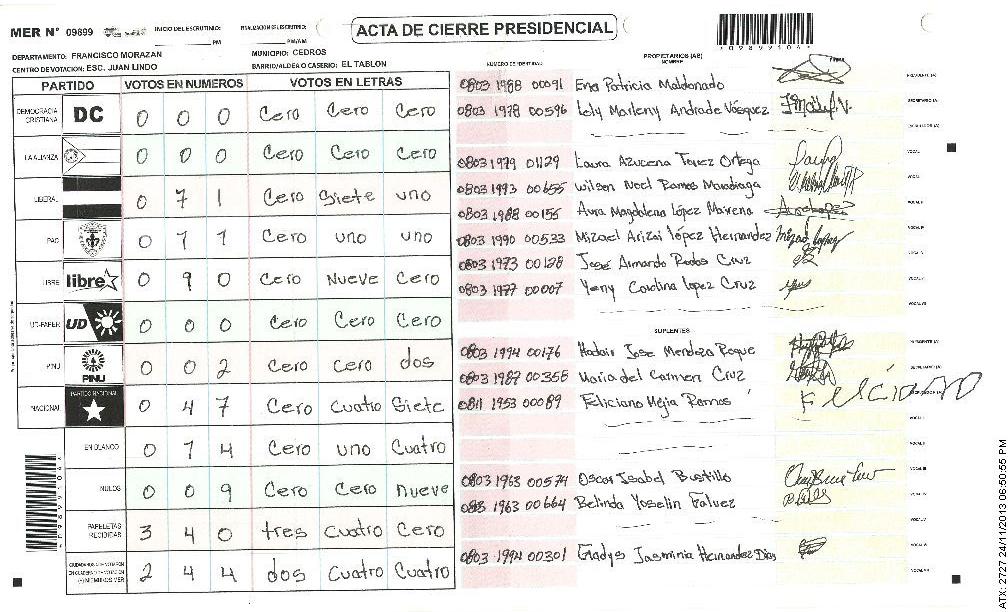 MER Nº 09899 INICIO DEL ESCRUTINIO: PM FINALIZACION ESCRUTINIO: PM/AM
ACTA DE CIERRE PRESIDENCIAL
DEPARTAMENTO: FRANCISCO MORAZAN MUNICIPIO: CEDROS
CENTRO DE VOTACION: ESC. JUAN LINDO BARRIO/ALDEA O CASERIO: EL TABLON
PARTIDO VOTOS EN NUMEROS VOTOS EN LETRAS
DEMOCRACIA CRISTIANA DC 0 0 0 Cero Cero Cero
LA ALIANZA 0 0 0 Cero Cero Cero
LIBERAL 0 7 1 Cero Siete uno
PAC 0 1 1 Cero uno uno
LIBRE libre 0 9 0 Cero Nueve Cero
UD-FAPER UD 0 0 0 Cero Cero Cero
PINU PINU 0 0 2 Cero Cero dos
NACIONAL PARTIDO NACIONAL 0 4 7 Cero Cuatro Siete
EN BLANCO 0 1 4 Cero uno Cuatro
NULOS 0 0 9 Cero Cero nueve
PAPELETAS RECIBIDAS 3 4 0 tres Cuatro Cero
CIUDADANOS QUE VOTARON EN CUADERNO DE VOTACION (+) MIEMBROS MER 2 4 4 dos Cuatro Cuatro
NUMERO DE IDENTIDAD PROPIETARIOS (AS) NOMBRE FIRMA
0803 1988 00091 Ena Patricia Maldonado PRESIDENTE (A)
0803 1978 00596 Lely Marleny Andrade Vásquez SECRETARIO (A)
ESCRUTADOR (A)
0803 1979 01129 Laura Azucena Torez Ortega VOCAL I
0803 1993 00655 Wilson Noel Ramos Maradiaga VOCAL II
0803 1988 00156 Aura Magdalena López Mairena VOCAL III
0803 1990 00533 Mizael Arizai López Hernandez VOCAL IV
0803 1973 00128 José Armando Rodas Cruz VOCAL V
0803 1977 00007 Yeny Carolina Lopez Cruz VOCAL VI
VOCAL VII
SUPLENTES
0803 1994 00176 Hadair Jose Mendoza Roque PRESIDENTE (A)
0803 1987 00358 Maria del Carmen Cruz SECRETARIO (A)
0811 1953 00089 Feliciano Mejia Ramos Feliciano ESCRUTADOR (A)
VOCAL I
VOCAL II
0803 1963 00574 Oscar Isabel Bustillo VOCAL III
0803 1963 00664 Belinda Yoselin Galvez VOCAL IV
VOCAL V
0803 1994 00301 Gladys Jasminia Hernandez Dias VOCAL VI
VOCAL VII
ATX: 2727 24/11/2013 06:50:55 PM